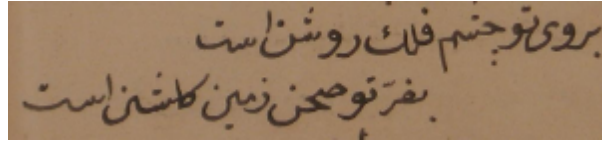 بروی تو چشم فلك روشن است
بفرّ تو صحن زمین گلشن است